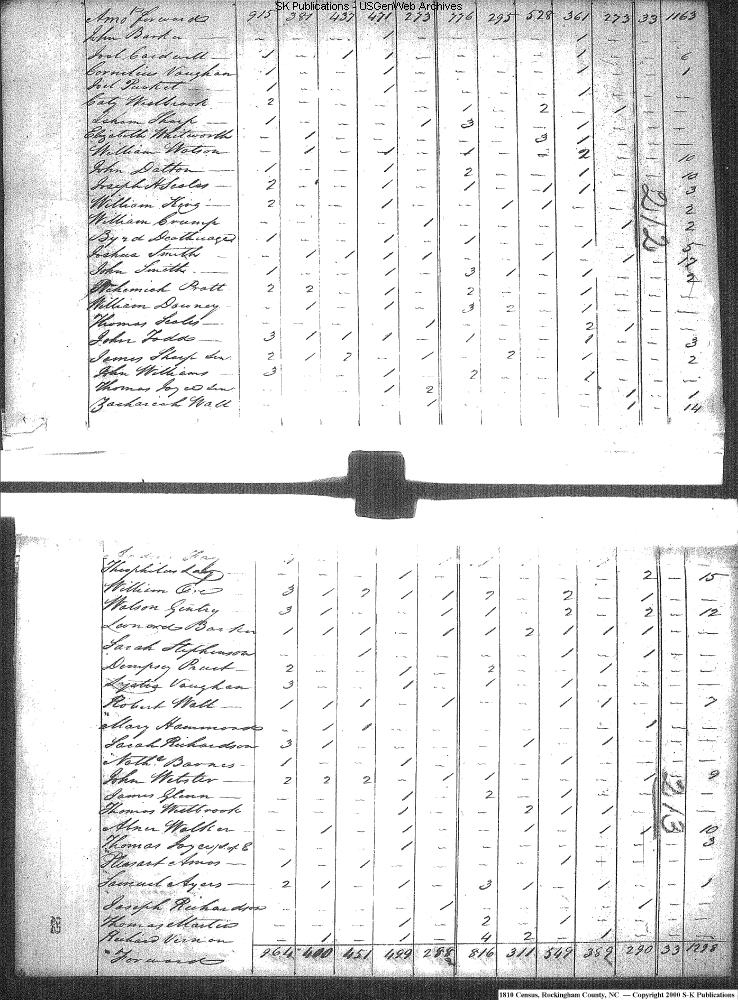 SK Publications - USGenWeb Archives
Amot forwards 915 381 437 471 273 776 295 528 361 273 33 1163
John Barker — — — 1 — — — — 1 — — —
Joel Cardwell 1 — 1 1 — — — — 1 — — 6
Cornelius Vaughan 1 — — 1 — — — — 1 — — 1
Joel Pucket 1 — — 1 — — — — 1 — — —
Caty Westbrook 2 — — — — 1 — 2 — 1 — —
Isham Sharp 1 — — — 1 3 — — 1 — — —
Elizabeth Whitworth — 1 — — — — — 3 1 — — —
William Watson — 1 — 1 — 1 — 1 2 — — 10
John Dalton 1 — — 1 — 2 — — 1 — —
Joseph H Scales 2 — — 1 — 1 — 1 1 — — 3
William King 2 — — 1 — — 1 1 — — — 2
William Crump — — — — 1 — — — — 1 — 2
Byrd Deatherage 1 — — 1 — 1 — — 1 — —
Joshua Smith — 1 1 1 1 — — 1 — 1 —
John Smith 1 — — 1 — 3 1 — 1 — — 2
Nehemiah Pratt 2 2 — 1 — 2 — — 1 — — —
William Downey — 1 — 1 — 3 2 — 1 — — —
Thomas Scales — — — — 1 — — — 2 1 — —
John Todd 3 1 1 1 — 1 — — 1 — — 3
James Sharp Sen 2 1 2 — 1 — 2 — 1 — — 2
John Williams 3 — — 1 — 2 — — 1 — — —
Thomas Joyce Sen — — — 1 2 — — — — 1 — 1
Zachariah Wall — — — — 1 — — — — 1 — 14
212
Theophilus Lacy — — — 1 — — — — — 2 — 15
William 3 1 2 1 1 2 — 2 — 1 — —
Watson Gentry 3 1 — — 1 1 — 2 — 2 — 12
Leonard Barker 1 1 1 — 1 1 2 1 1 1 — —
Sarah Stephenson — — 1 — — — — 1 — 1 — —
Dempsey Pruet 2 — — 1 — 2 — — 1 — — —
Vaughan 3 — — 1 — 1 — 1 — — — —
Robert Wall 1 1 1 — 1 — — 1 1 — — 7
Mary Hammonds — 1 1 — — — — — — 1 — —
Sarah Richardson 3 1 — — — — 1 — 1 — — —
Nathl Barnes 1 — — — — — — 1 — — — —
John Webster 2 2 2 — 1 1 — — — 1 — 9
James Glenn — — — 1 — 2 — 1 — — — —
Thomas Westbrook — — — 1 — — 2 1 1 — — —
Abner Walker — 1 — 1 — — 1 — 1 1 — 10
Thomas Joyce — — — 1 — — — — — — — 3
Pleasant Amos 1 — 1 — — — — 1 — — — —
Samuel Ayers 2 1 — 1 — 3 1 — 1 — — 1
Joseph Richardson — — — — 1 — — — — 1 — —
Thomas Martin — — — 1 — 2 — 1 — — — —
Richard Vernon — 1 — 1 — 4 2 — 1 — — —
Forward 964 400 451 499 288 816 311 549 389 290 33 1298
213
1810 Census, Rockingham County, NC — Copyright 2000 S-K Publications